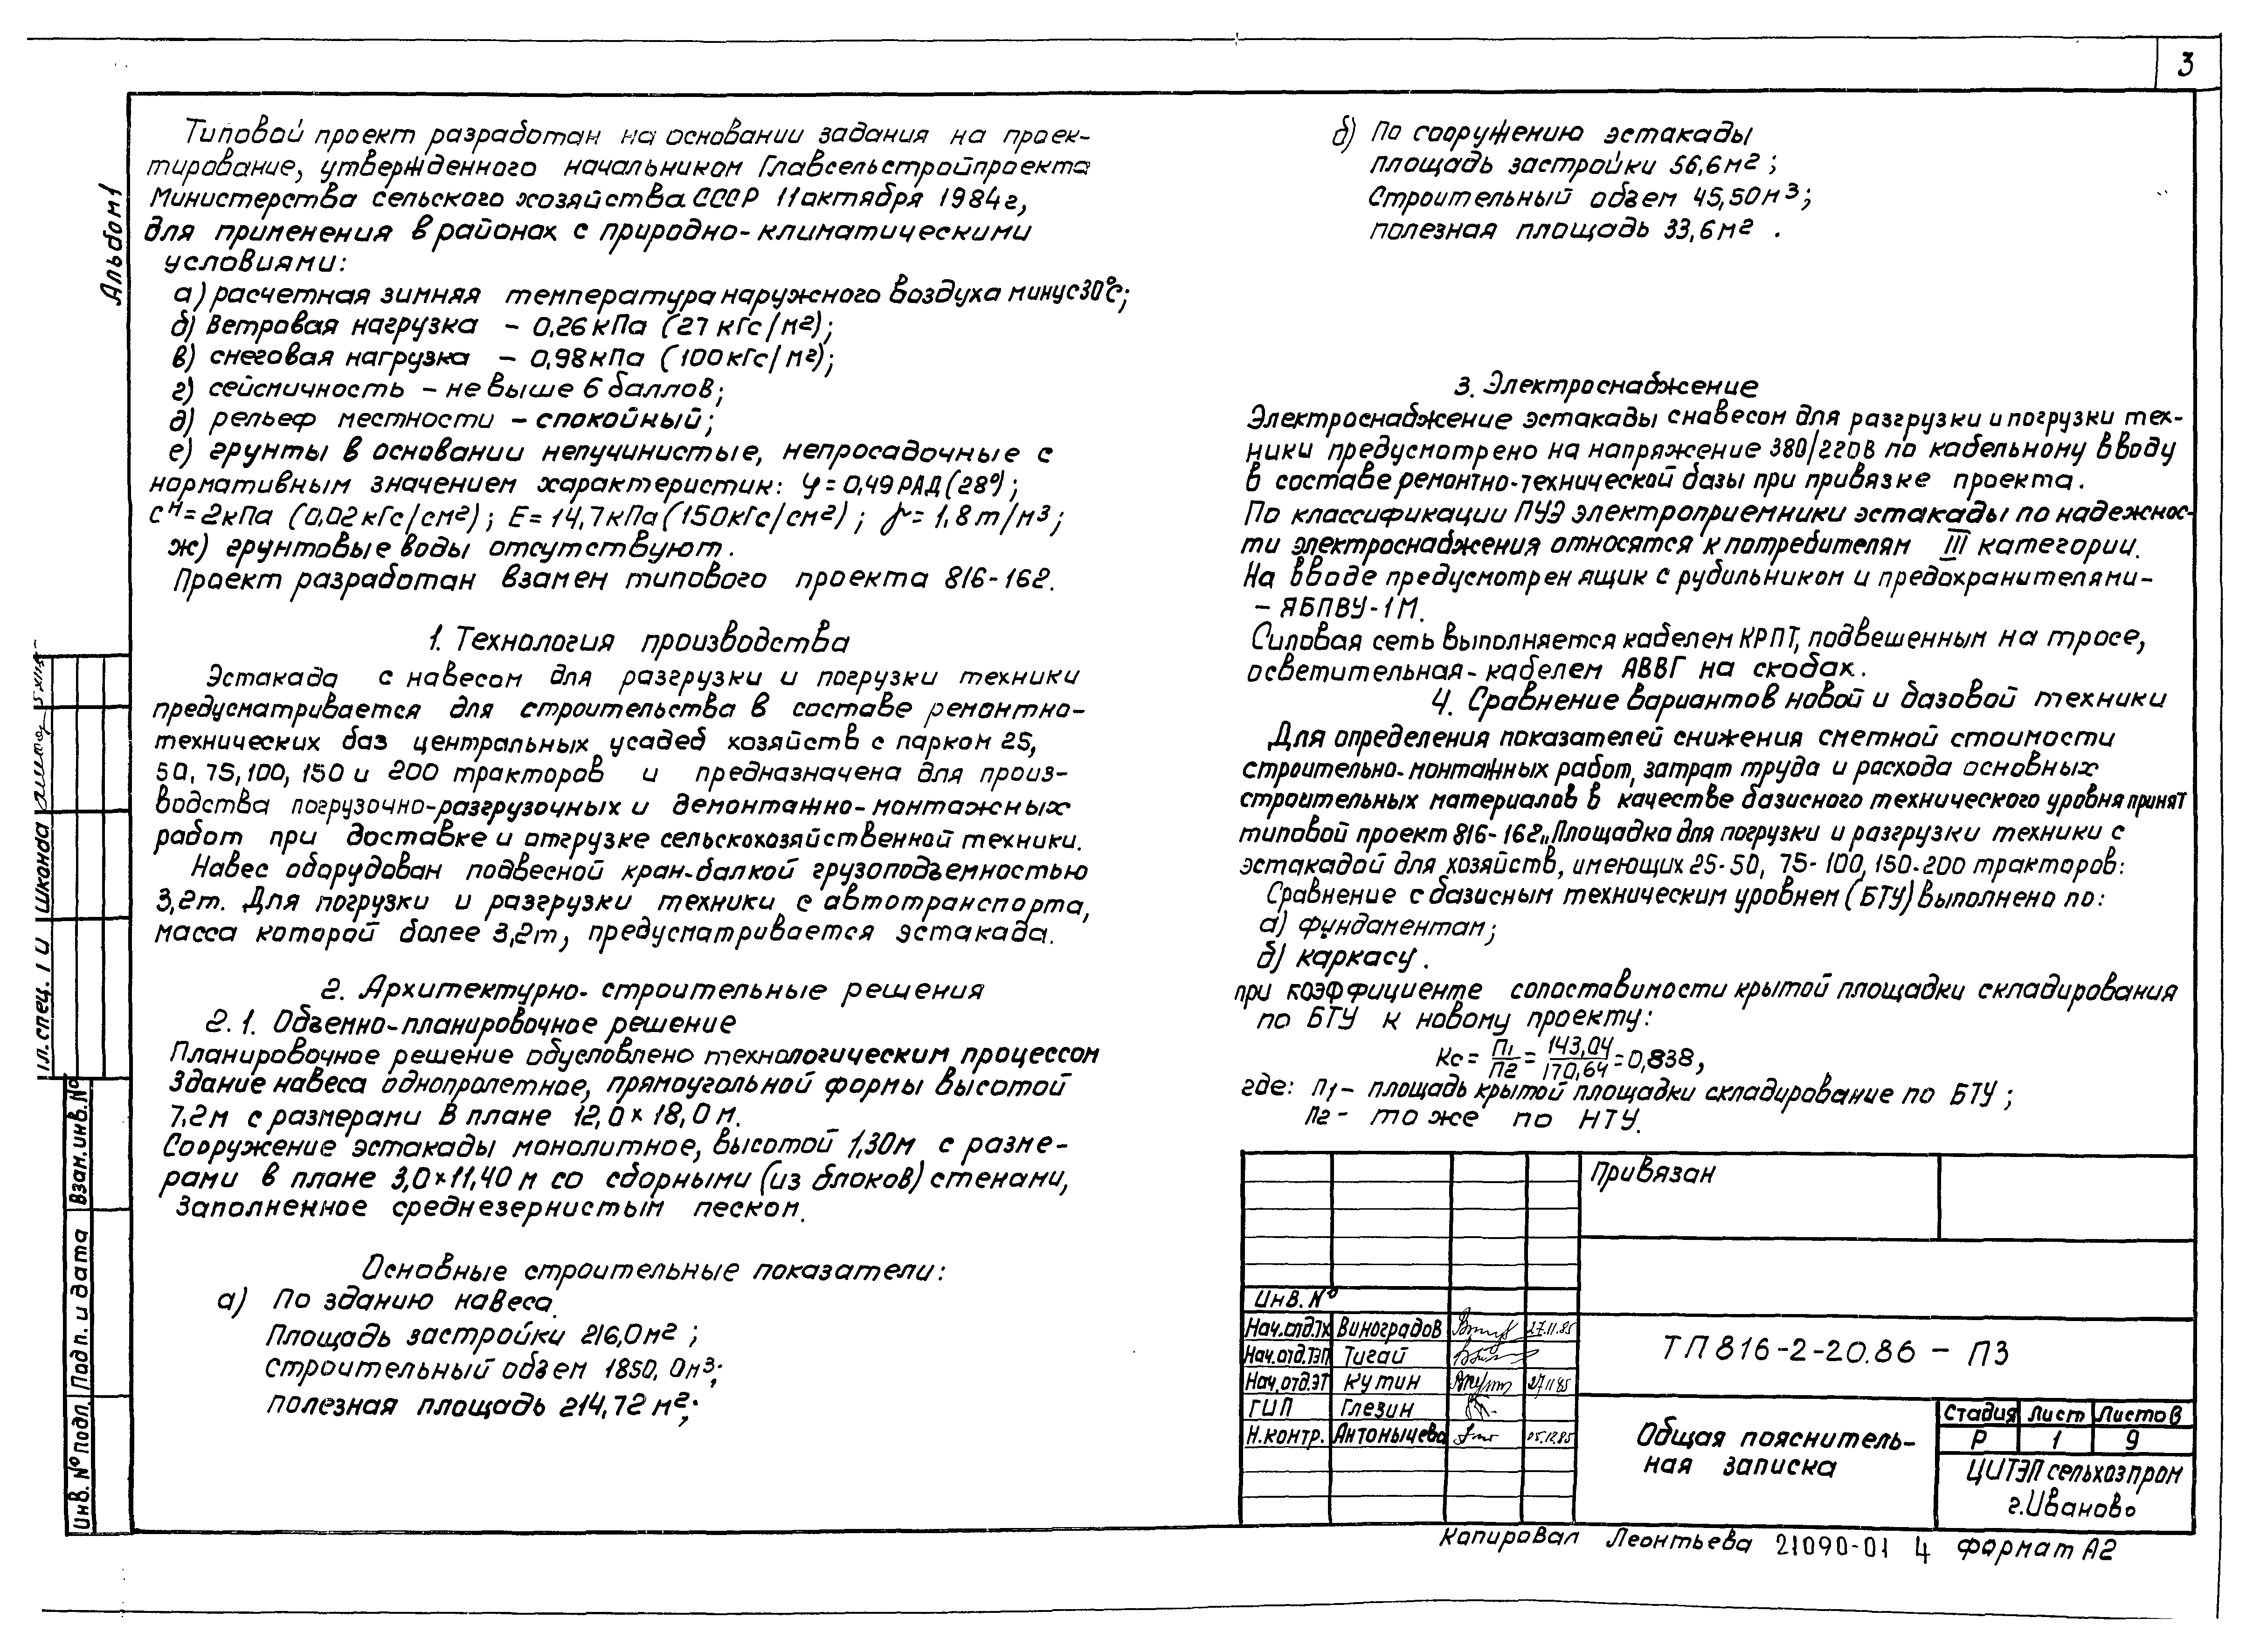 3
Типовой проект разработан на основании задания на проек-
тирование, утвержденного начальником Главсельстройпроекта
Министерства сельского хозяйства СССР 11 октября 1984г,
для применения в районах с природно-климатическими
условиями:
а) расчетная зимняя температура наружного воздуха минус 30°С;
б) Ветровая нагрузка - 0,26 кПа (27 кГс/м2);
в) снеговая нагрузка - 0,98 кПа (100 кГс/м2);
г) сейсмичность - не выше 6 баллов;
д) рельеф местности - спокойный;
е) грунты в основании непучинистые, непросадочные с
нормативным значением характеристик: φ = 0,49 РАД (28°);
Cн = 2кПа (0,02 кГс/см2); Е = 14,7 кПа (150 кГс/см2); γ = 1,8 т/м3;
ж) грунтовые воды отсутствуют.
Проект разработан взамен типового проекта 816-162.
1. Технология производства
Эстакада с навесом для разгрузки и погрузки техники
предусматривается для строительства в составе ремонтно-
технических баз центральных усадеб хозяйств с парком 25,
50, 75, 100, 150 и 200 тракторов и предназначена для произ-
водства погрузочно-разгрузочных и демонтажно-монтажных
работ при доставке и отгрузке сельскохозяйственной техники.
Навес оборудован подвесной кран-балкой грузоподъемностью
3,2т. Для погрузки и разгрузки техники с автотранспорта,
масса которой более 3,2т, предусматривается эстакада.
2. Архитектурно-строительные решения
2.1. Объемно-планировочное решение
Планировочное решение обусловлено технологическим процессом
Здание навеса однопролетное, прямоугольной формы высотой
7,2м с размерами в плане 12,0 × 18,0 м.
Сооружение эстакады монолитное, высотой 1,30м с разме-
рами в плане 3,0×11,40 м со сборными (из блоков) стенами,
Заполненное среднезернистым песком.
Основные строительные показатели:
а) По зданию навеса.
Площадь застройки 216,0м2;
строительный объем 1850,0м3;
полезная площадь 214,72 м2;
б) По сооружению эстакады
площадь застройки 56,6м2;
Строительный объем 45,50м3;
полезная площадь 33,6м2.
3. Электроснабжение
Электроснабжение эстакады с навесом для разгрузки и погрузки тех-
ники предусмотрено на напряжение 380/220В по кабельному вводу
в составе ремонтно-технической базы при привязке проекта.
По классификации ПУЭ электроприемники эстакады по надежнос-
ти электроснабжения относятся к потребителям III категории.
На вводе предусмотрен ящик с рубильником и предохранителями-
- ЯБПВУ-1М.
Силовая сеть выполняется кабелем КРПТ, подвешенным на тросе,
осветительная - кабелем АВВГ на скобах.
4. Сравнение вариантов новой и базовой техники
Для определения показателей снижения сметной стоимости
строительно-монтажных работ, затрат труда и расхода основных
строительных материалов в качестве базисного технического уровня принят
типовой проект 816-162 „Площадка для погрузки и разгрузки техники с
эстакадой для хозяйств, имеющих 25-50, 75-100, 150-200 тракторов:
Сравнение с базисным техническим уровнем (БТУ) выполнено по:
а) фундаментам;
б) каркасу.
при коэффициенте сопоставимости крытой площадки складирования
по БТУ к новому проекту:
Кс = П1/П2 = 143,04/170,64 = 0,838,
где: П1 - площадь крытой площадки складирование по БТУ;
П2 - то же по НТУ.
Привязан
Инв. №
Нач.отд.ТХ Виноградов 27.11.85
Нач.отд.ТЭП Тигай
Нач.отд.ЭТ Кутин 27.11.85
ГИП Глезин
Н.контр. Антонычева 05.12.85
ТП 816-2-20.86 - ПЗ
Общая пояснитель-
ная записка
Стадия Лист Листов
Р 1 9
ЦИТЭПсельхозпром
г.Иваново
Копировал Леонтьева 21090-01 4 формат А2
Альбом 1
Гл. спец. ТИ Шконда
Взам. инв. №
Подп. и дата
Инв. № подл.